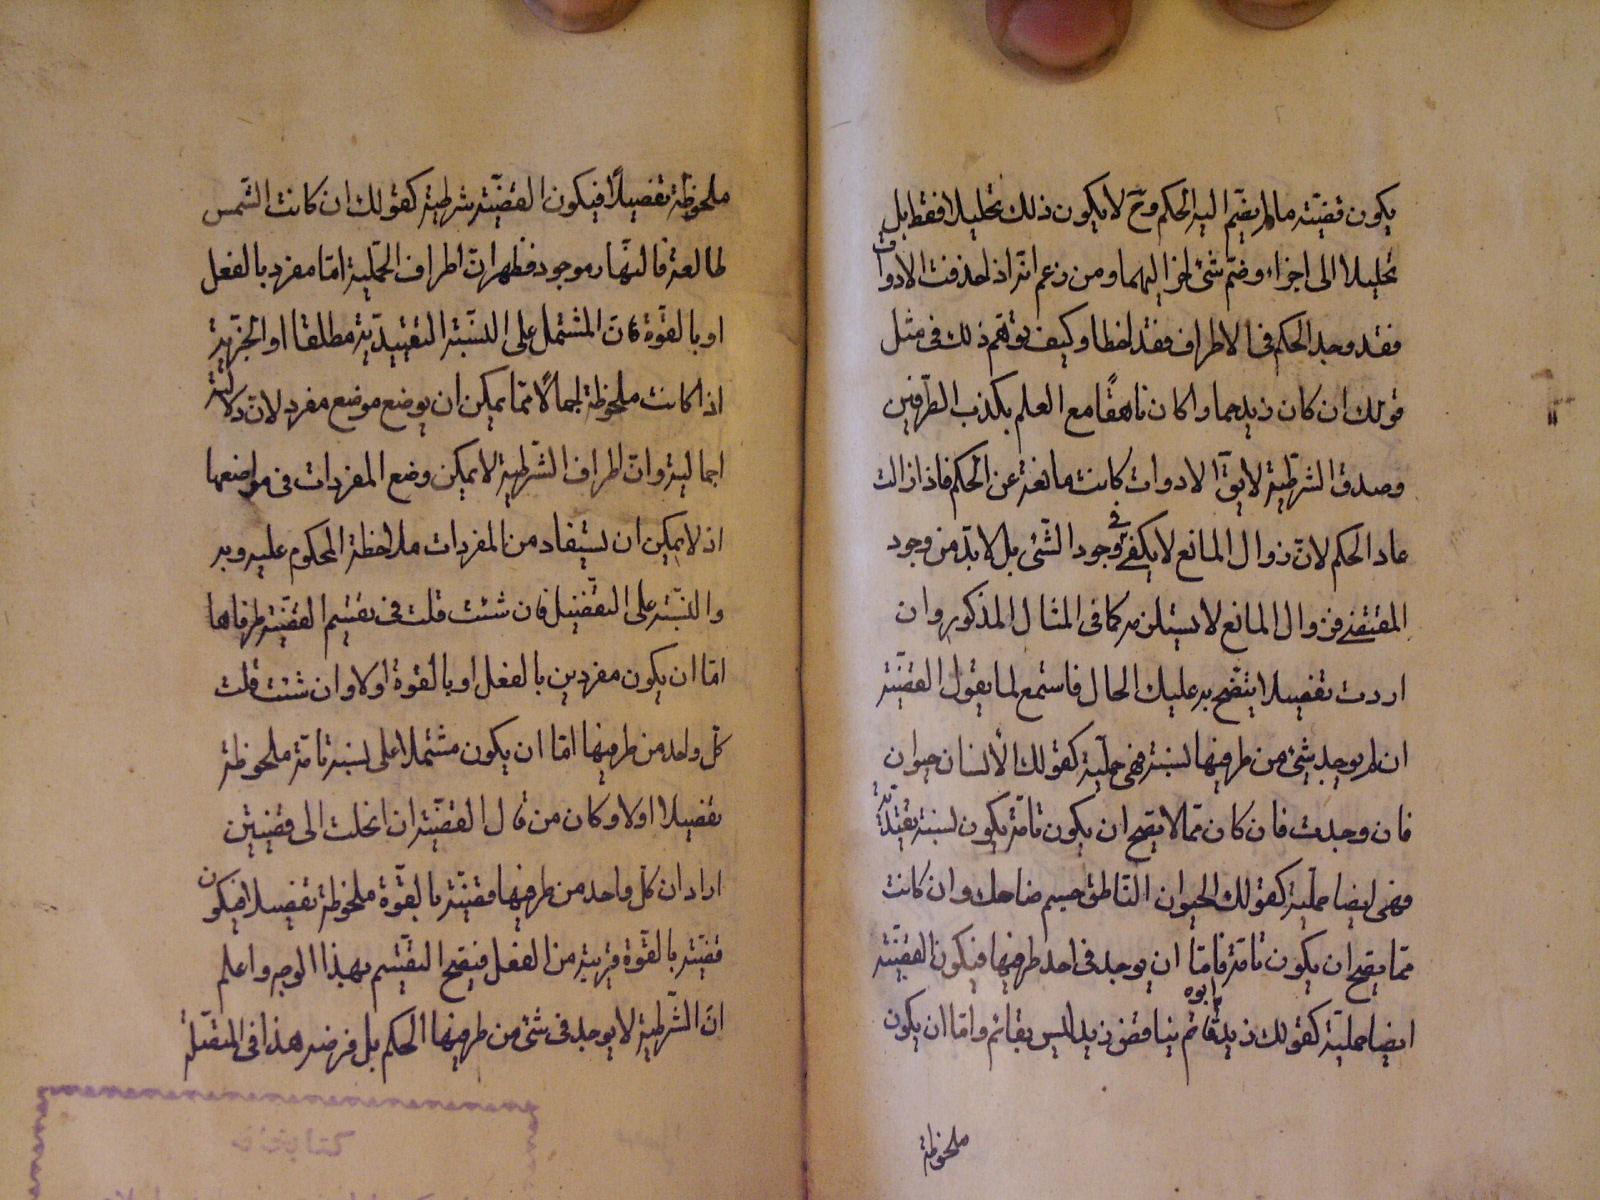 يكون قضيته مالم يضم اليه الحكم وح لا يكون ذلك تحليلا فقط بل
تحليلا الى اجزاء وضم شئ اخر اليهما ومن زعم انه اذا حذفت الادوات
فقد وجد الحكم فى الاطراف فقد اخطا وكيف يتوهم ذلك فى مثل
قولك ان كان زيد حمارا كان ناهقًا مع العلم بكذب الطرفين
وصدق الشرطية لا يق الادوات كانت مانعة عن الحكم فاذا زالت
عاد الحكم لانّ زوال المانع لا يكفى فى وجود الشئ بل لابدّ من وجود
المقتضى فزوال المانع لا يستلزمه كما فى المثال المذكور وان
اردت تفصيلا يتضح به عليك الحال فاستمع لما يقول القضيّة
ان لم يوجد بشئ من طرفيها نسبة فهى حمليّة كقولك الانسان حيوان
فان وجدت فان كان ممّا لا يصح ان يكون تامّة يكون نسبة تقييديّة
فهى ايضا حمليّة كقولك الحيوان الناطق جسم ضاحك وان كانت
ممّا يصح ان يكون تامّة فامّا ان يوجد فى احد طرفيها فيكون القضيّة
ايضا حمليّة كقولك زيد ابوه قائم يناقض زيد ليس بقائم وامّا ان يكون
ملحوظة
ملحوظة تفصيلًا فيكون القضيّة شرطية كقولك ان كانت الشمس
طالعة فالنهار موجود فظهر انّ اطراف الحمليّة امّا مفرد بالفعل
او بالقوّة فانّ المشتمل على النسبة التقييديّة مطلقا او الخبرية
اذا كانت ملحوظة اجمالًا ممّا يمكن ان يوضع موضع مفرد لانّ دلالته
اجمالية وانّ اطراف الشرطية لا يمكن وضع المفردات فى مواضعها
اذ لا يمكن ان يستفاد من المفردات ملاحظة المحكوم عليه وبه
والنسبة على التفصيل فان شئت قلت فى تقسيم القضيّة طرفاها
امّا ان يكون مفردين بالفعل او بالقوة اولا وان شئت قلت
كلّ واحد من طرفيها امّا ان يكون مشتملا على نسبة تامّة ملحوظة
تفصيلا اولا وكان من قال القضيّة ان انحلت الى قضيتين
اراد ان كلّ واحد من طرفيها قضيّة بالقوّة ملحوظة تفصيلا فيكون
قضيّة بالقوّة قريبة من الفعل فيصح التقسيم بهذا الوجه واعلم
انّ الشرطية لا يوجد فى شئ من طرفيها الحكم بل فرضه هذا فى المتصلة